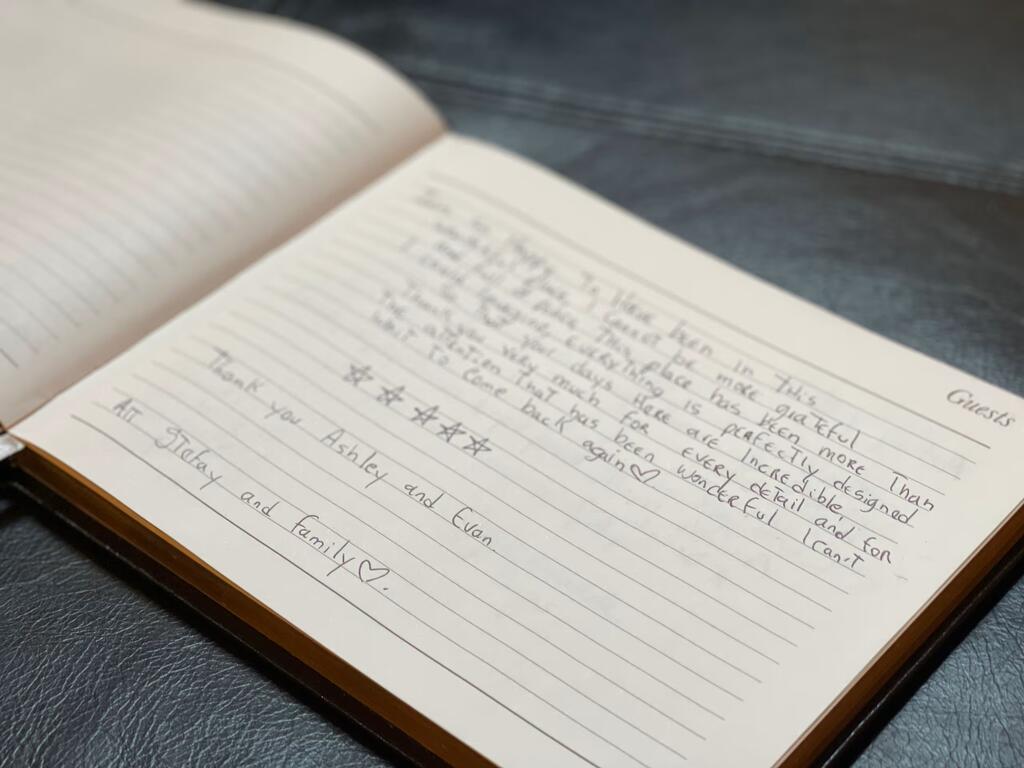 Guests
I'm so Happy To Have been in This
place. I Cannot be more grateful
This place has been more Than
I could Imagine EVERYTHING is perfectly designed
you days Here are Incredible,
Thank you very much for EVERY detail and for
The attention That has been wonderful I Can't
wait To come back again♡
☆☆☆☆☆
Thank you Ashley and Evan.
ATT Stefay and family♡.